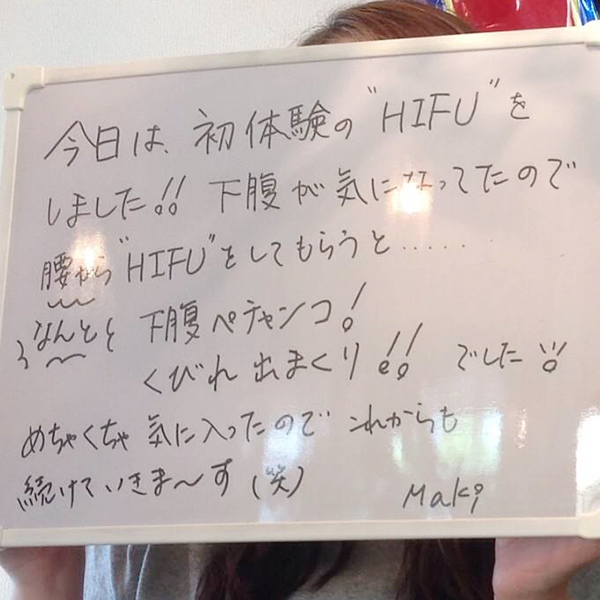 今日は、初体験の"HIFU"を
しました!! 下腹が気になってたので
腰から"HIFU"をしてもらうと……
なんとと 下腹ペチャンコ!
くびれ出まくり!! でした!!
めちゃくちゃ気に入ったので これからも
続けていきま〜す(笑) Maki